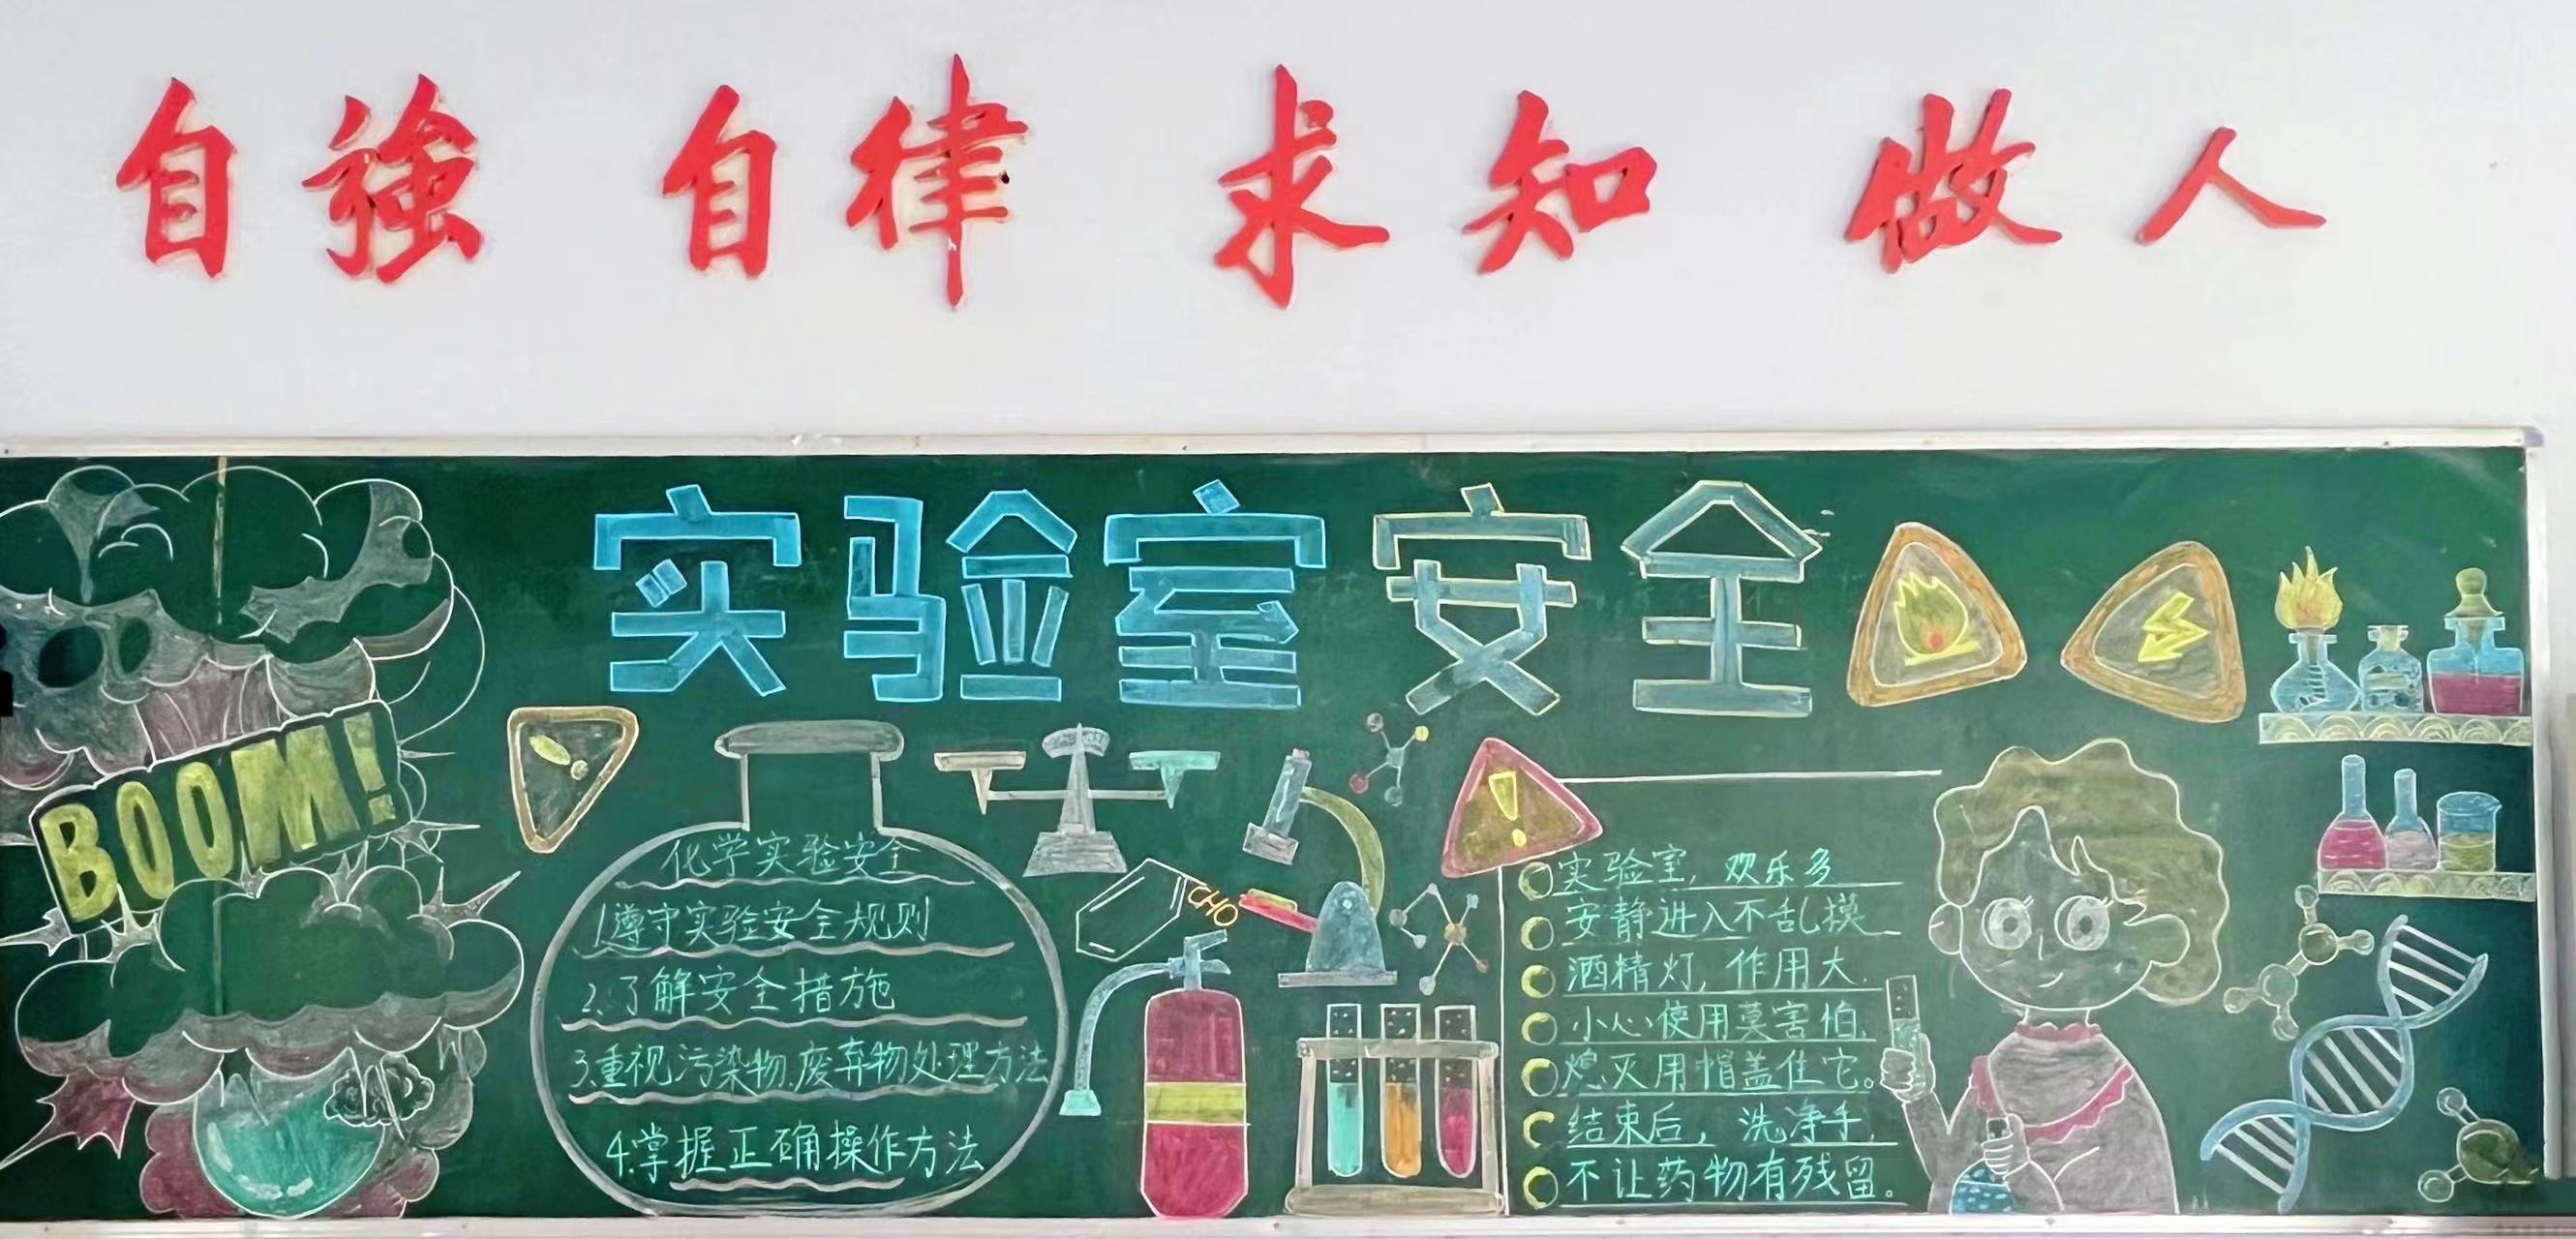 自強 自律 求知 做人
实验室安全
BOOM!
化学实验安全
1.遵守实验安全规则
2.了解安全措施
3.重视污染物.废弃物处理方法
4.掌握正确操作方法
CHO
实验室，欢乐多
安静进入不乱摸
酒精灯，作用大.
小心使用莫害怕.
熄灭用帽盖住它。
结束后，洗净手，
不让药物有残留。